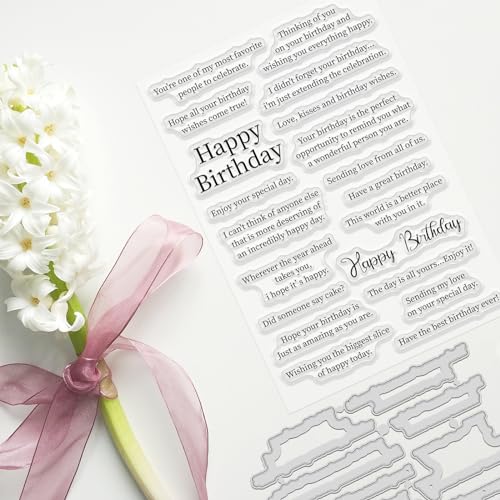 Thinking of you
on your birthday and
wishing you everything happy.
You're one of my most favorite
people to celebrate.
I didn't forget your birthday...
I'm just extending the celebration.
Hope all your birthday
wishes come true!
Love, kisses and birthday wishes.
Happy
Birthday
Your birthday is the perfect
opportunity to remind you what
a wonderful person you are.
Sending love from all of us.
Enjoy your special day.
Have a great birthday.
I can't think of anyone else
that is more deserving of
an incredibly happy day.
This world is a better place
with you in it.
Wherever the year ahead
takes you,
i hope it's happy.
Happy Birthday
Did someone say cake?
The day is all yours...Enjoy it!
Hope your birthday is
Just as amazing as you are.
Sending my love
on your special day.
Wishing you the biggest slice
of happy today.
Have the best birthday ever